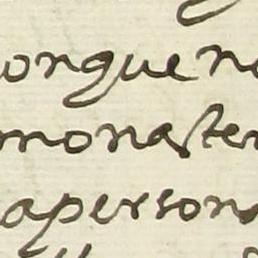 onque no
monaster
apersona